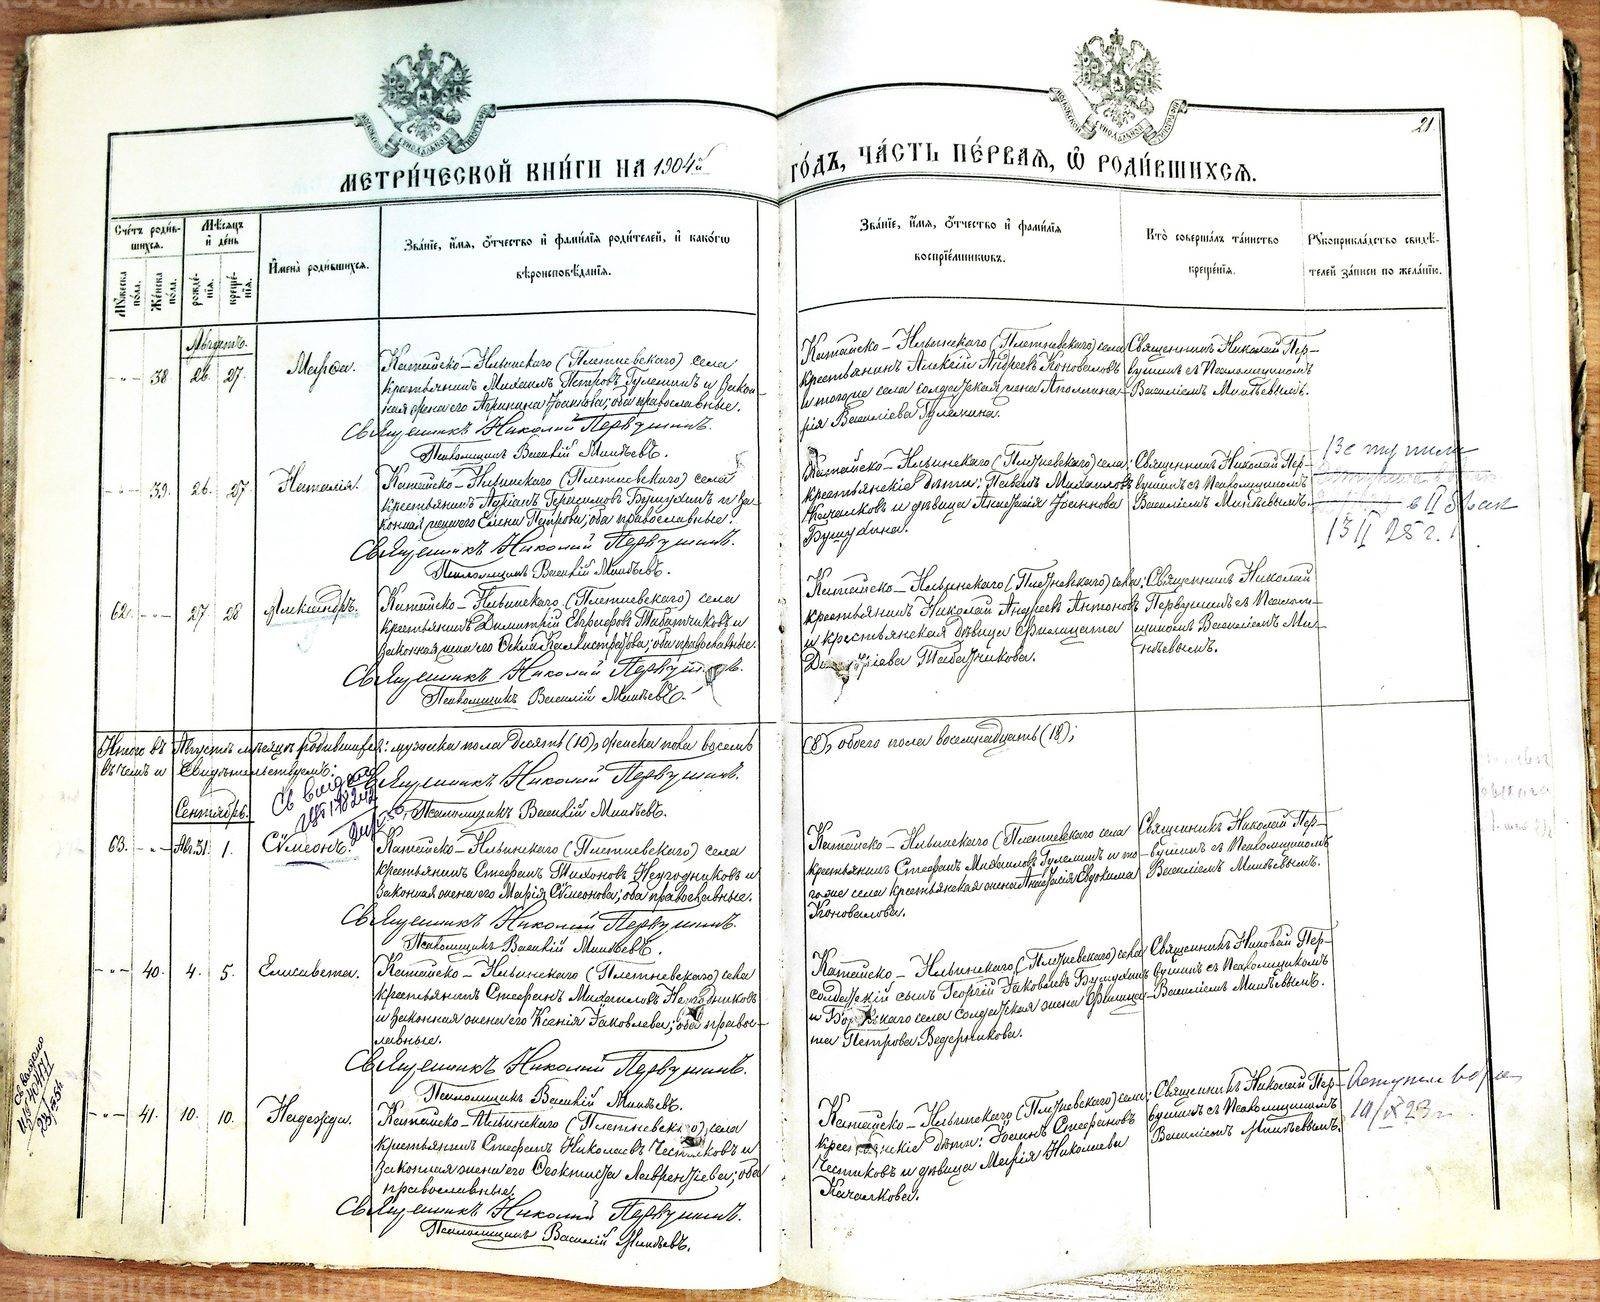 21
МЕТРИ́ЧЕСКОЙ КНИ́ГИ НА 1904й
ГО́ДЪ, ЧА́СТЬ ПЕ́РВАЯ, Ѽ РОДИ́ВШИХСЯ.
Сче́тъ роди́в-
шихся.
Му́жеска
по́ла.
Же́нска
по́ла.
Мѣ́сяцъ
и де́нь
рожде́-
нія.
креще́-
нія.
Имена̀ роди́вшихся.
Зва́ніе, и́мя, о́тчество и фами́лія роди́телей, и како́гѡ
вѣроисповѣ́данія.
Зва́ніе, и́мя, о́тчество и фами́лія
воспріе́мниковъ.
Кто̀ соверша́лъ та́инство
креще́нія.
Рукоприкла́дство свидѣ́-
телей за́писи по жела́нію.
Августъ.
38 26. 27. Марѳа.
Катайско-Ильинскаго (Плетневскаго) села
крестьянинъ Михаилъ Петровъ Гулеминъ и закон-
ная жена его Агрипина Іоаннова; оба православные.
Священникъ Николай Первушинъ.
Псаломщикъ Василій Минѣевъ.
Катайско-Ильинскаго (Плетневскаго) села
крестьянинъ Алексій Андреевъ Коноваловъ
и тогоже села солдатская жена Аполлина-
рія Василіева
Священникъ Николай Пер-
вушинъ съ Псаломщикомъ
Василіемъ Минѣевымъ.
39. 26. 27 Наталія.
Катайско-Ильинскаго (Плетневскаго) села
крестьянинъ Адріанъ Герасимовъ и за-
конная жена его Елена Петрова; оба православные.
Священникъ Николай Первушинъ.
Псаломщикъ Василій Минѣевъ.
Катайско-Ильинскаго (Плетневскаго) села
крестьянскіе дѣти: Павелъ Михаиловъ
Качалковъ и дѣвица Анастасія Іоаннова
Священникъ Николай Пер-
вушинъ съ Псаломщикомъ
Василіемъ Минѣевымъ.
в II брак
13 II 25 г.
62. 27 28 Александръ.
Катайско-Ильинскаго (Плетневскаго) села
крестьянинъ Димитрій Табатчиковъ и
законная жена его Ѳекла Каллистратова; оба православные.
Священникъ Николай Первушинъ.
Псаломщикъ Василій Минѣевъ.
Катайско-Ильинскаго (Плетневскаго) села:
крестьянинъ Николай Андреевъ Антоновъ
и крестьянская дѣвица Филицата
Табатчикова.
Священникъ Николай
Первушинъ съ Псалом-
щикомъ Василіемъ Ми-
нѣевымъ.
Итого въ Августѣ мѣсяцѣ родившихся: мужеска пола десять (10), женска пола восемь
(8), обоего пола восемнадцать (18);
въ чемъ и свидѣтельствуемъ:
Священникъ Николай Первушинъ.
Псаломщикъ Василій Минѣевъ.
Сентябрь.
63. Авг.31. 1. Сѵмеонъ.
Катайско-Ильинскаго (Плетневскаго) села
крестьянинъ Стефанъ Тихоновъ Негодниковъ и
законная жена его Марія Сѵмеонова; оба православные.
Священникъ Николай Первушинъ.
Псаломщикъ Василій Минѣевъ.
Катайско-Ильинскаго (Плетневскаго) села
крестьянинъ Стефанъ Михаиловъ Гулеминъ и то-
гоже села крестьянская жена Анастасія Евдокима
Коновалова.
Священникъ Николай Пер-
вушинъ съ Псаломщикомъ
Василіемъ Минѣевымъ.
40. 4. 5. Елисавета.
Катайско-Ильинскаго (Плетневскаго) села
крестьянинъ Стефанъ Михаиловъ Негодниковъ
и законная жена его Ксенія Іаковлева; оба право-
славные.
Священникъ Николай Первушинъ.
Псаломщикъ Василій Минѣевъ.
Катайско-Ильинскаго (Плетневскаго) села
солдатскій сынъ Георгій Іаковлевъ
села солдатская жена Филица-
та Петрова Ведерникова.
Священникъ Николай Пер-
вушинъ съ Псаломщикомъ
Василіемъ Минѣевымъ.
41. 10. 10. Надежда.
Катайско-Ильинскаго (Плетневскаго) села
крестьянинъ Стефанъ Николаевъ Честиковъ и
законная жена его Ѳеоктиста Лаврентіева; оба
православные.
Священникъ Николай Первушинъ.
Псаломщикъ Василій Минѣевъ.
Катайско-Ильинскаго (Плетневскаго) села:
дѣти: Іоаннъ Стефановъ
Честиковъ и дѣвица Марія Николаева
Качалкова.
Священникъ Николай Пер-
вушинъ съ Псаломщикомъ
Василіемъ Минѣевымъ.
METRIKI.GASO-URAL.RU